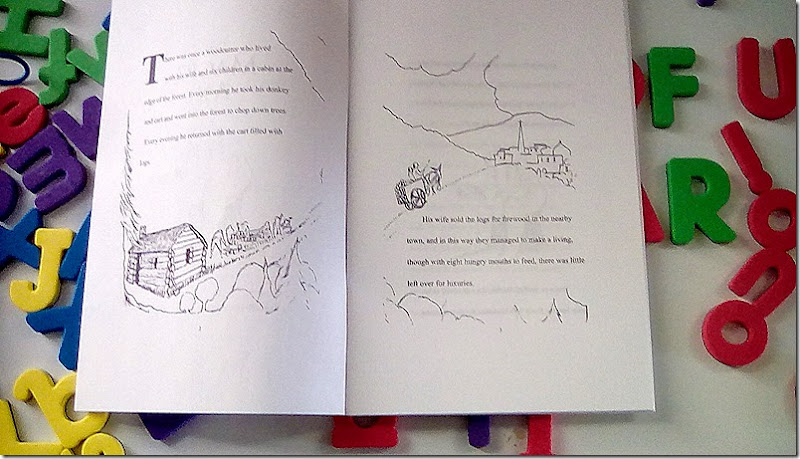 There was once a woodcutter who lived
with his wife and six children in a cabin at the
edge of the forest. Every morning he took his donkey
and cart and went into the forest to chop down trees.
Every evening he returned with the cart filled with
logs.
1
His wife sold the logs for firewood in the nearby
town, and in this way they managed to make a living,
though with eight hungry mouths to feed, there was little
left over for luxuries.
F
U
R
J